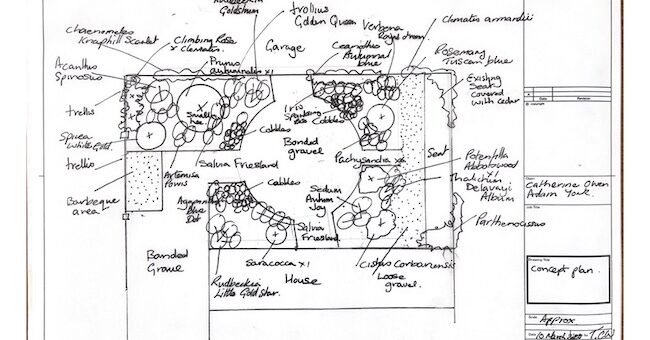 Rudbeckia
Goldsturm
trollius
Golden Queen
Verbena
Royal dream.
Clematis armandii
Chaenomeles
Knaphill Scarlet
Climbing Rose
x Clematis.
Garage
Ceanothus
Autumnal
blue
Rosemary
Tuscan blue
Acanthus
Spinosus
Prunus
autumnalis x1
Existing
Seat
Covered
with cedar
trellis
Small
tree
Iris
Cobbles
Cobbles
Bonded
gravel
Spirea
trellis
Salvia Friesland
Artemisia
Powis
Pachysandra x6
Seat
Potentilla
Abbotswood
x1
Thalictrum
Delavayi
Album
Barbeque
area
Cobbles
Sedum
Autumn
Joy
Salvia
Friesland.
Blue
Parthenocissus
Bonded
Gravel
Saracocca x1
House
Cistus Corbariensis
Loose
gravel.
Rudbeckia
Little Gold Star.
Date
Revision
Catherine Owen
Adam York.
Job Title
Drawing Title
Concept plan.
Scale
Approx
Date